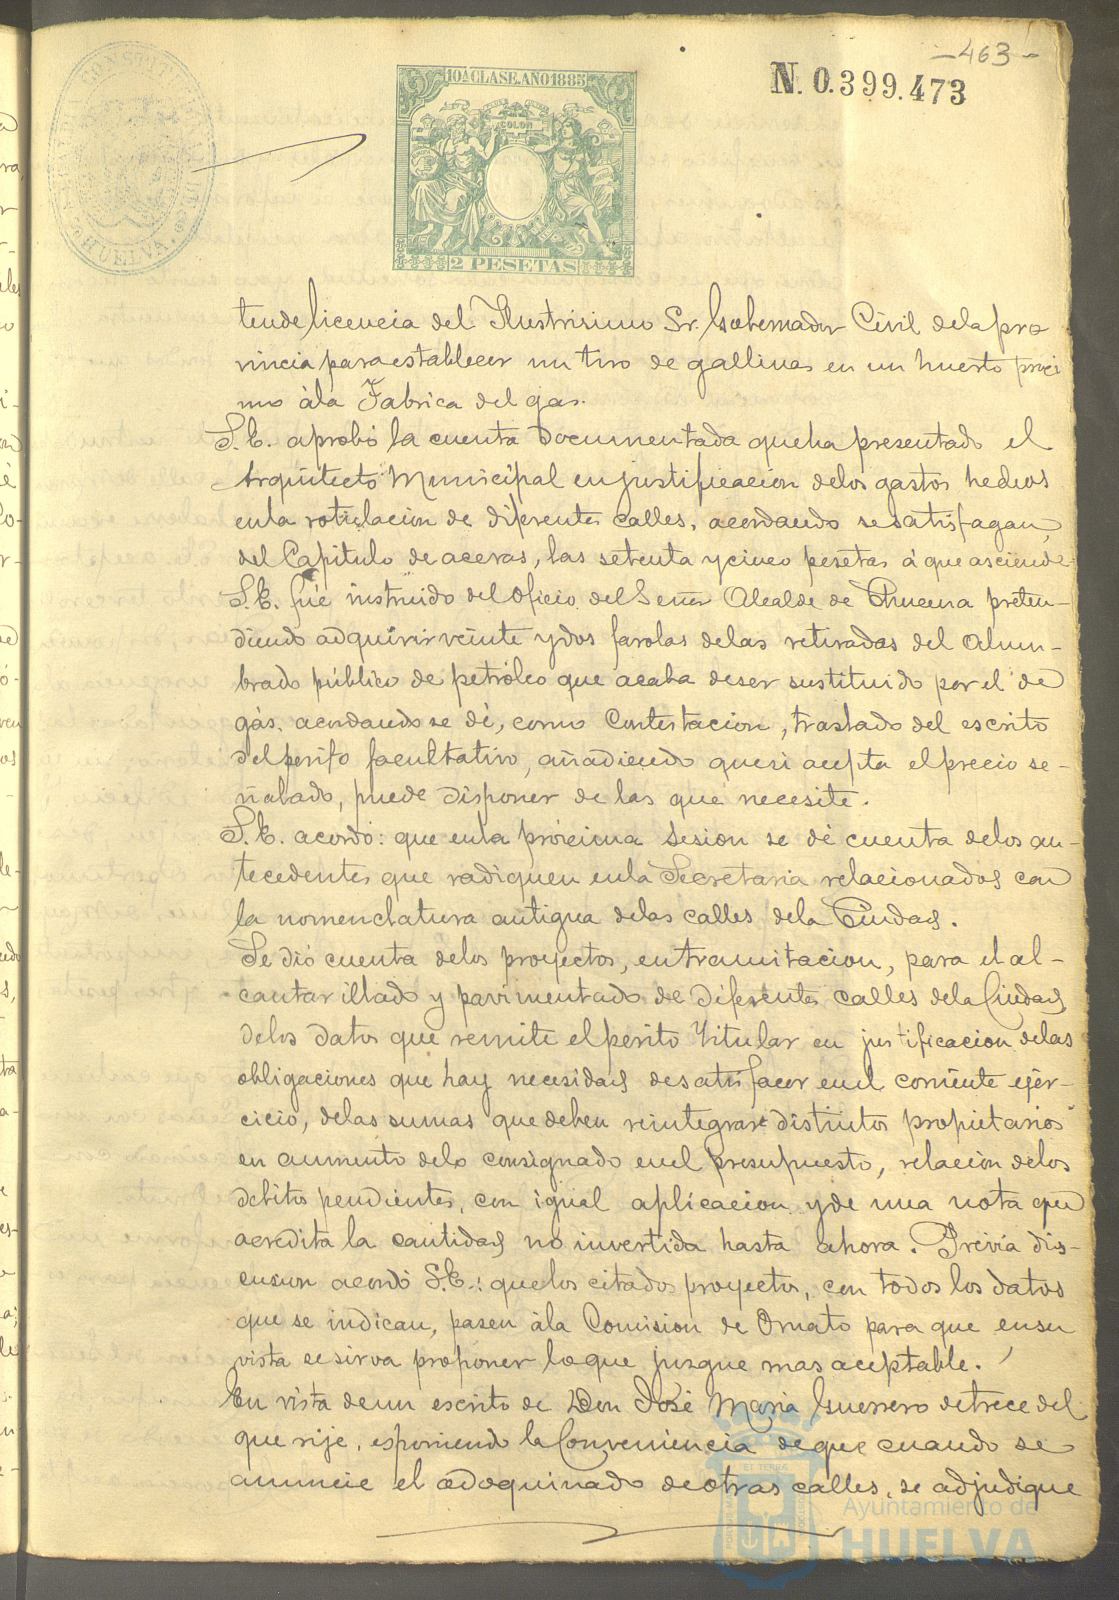 -463-
N. 0.399.473
10ª CLASE. AÑO 1885
COLON
2 PESETAS
CONSTITU
HUELVA.
tende licencia del Ilustrisimo Sr. Gobernador Civil dela pro
vincia para establecer un tiro de gallinas en un huerto proci
mo àla Fabrica del gas.
S.E. aprobó la cuenta documentada queha presentado el
Arquitecto Municipal enjustificacion delos gastos hechos
enla rotulacion de diferentes calles, acordando sesatisfagan,
del Capitulo de aceras, las setenta ycinco pesetas á que asciende
S.E. fué instruido del oficio del Señor Alcalde de Chucena preten-
diendo adquirir veinte ydos farolas delas retiradas del alum-
brado público de petróleo que acaba deser sustituido por el de
gás. acordando se dé, como contestacion, traslado del escrito
del perito facultativo, añadiendo quesi acepta el precio se-
ñalado, puede disponer de las que necesite.
S.E. acordó: que enla prócima sesion se dé cuenta delos an-
tecedentes que radiquen enla Secretaria relacionados con
la nomenclatura antigua delas calles dela Ciudad.
Se dió cuenta delos proyectos, entramitacion, para el al-
cantarillado y pavimentado de diferentes calles dela Ciudad
delos datos que remite el perito titular en justificacion delas
obligaciones que hay necesidad desatisfacer enel corriente ejer-
cicio, delas sumas que deben reintegrar distintos propietarios
en aumento delo consignado enel presupuesto, relacion delos
debitos pendientes, con igual aplicacion yde una nota que
acredita la cantidad no invertida hasta ahora. Prévia dis-
cusion acordó S.E.: quelos citados proyectos, con todos los datos
que se indican, pasen àla Comision de Ornato para que ensu
vista sesirva proponer loque juzgue mas aceptable.
En vista deun escrito de Don José Maria Guerrero detrece del
que rije, esponiendo la Conveniencia deque cuando se
anuncie el adoquinado deotras calles, se adjudique
Ayuntamiento de
HUELVA